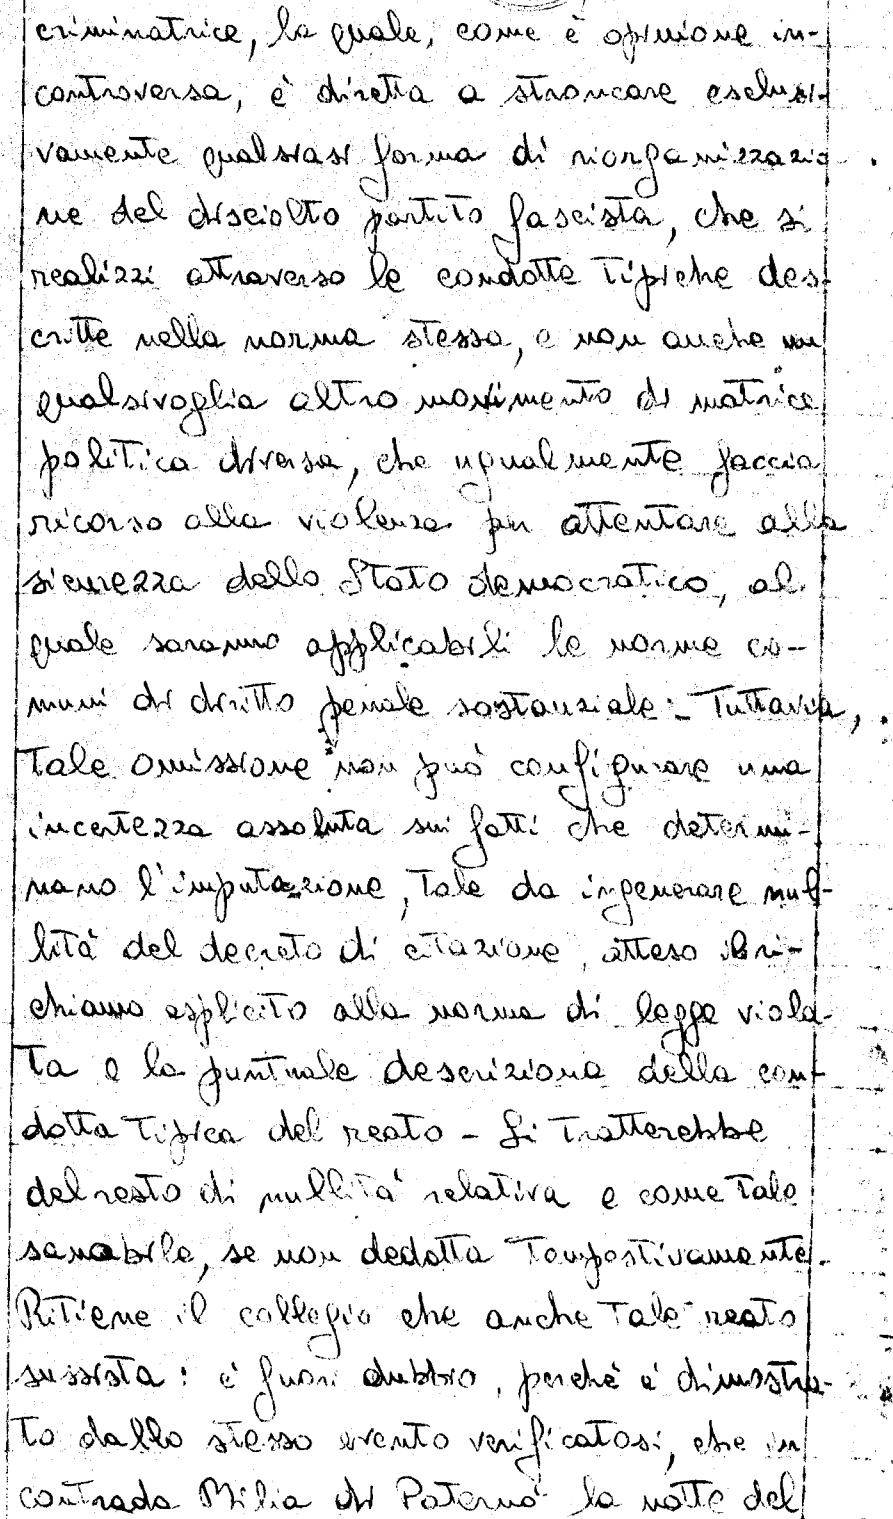 criminatrice, la quale, come è opinione in-
controversa, è diretta a stroncare esclusi-
vamente qualsiasi forma di riorganizzazio
ne del disciolto partito fascista, che si
realizzi attraverso le condotte tipiche des-
critte nella norma stessa, e non anche un
qualsivoglia altro movimento di matrice
politica diversa, che ugualmente faccia
ricorso alla violenza per attentare alla
sicurezza dello Stato democratico, al
quale saranno applicabili le norme co-
muni di diritto penale sostanziale. - Tuttavia,
tale omissione non può configurare una
incertezza assoluta sui fatti che determi-
nano l'imputazione, tale da ingenerare nul-
lità del decreto di citazione, atteso il ri-
chiamo esplicito alla norma di legge viola-
ta e la puntuale descrizione della con-
dotta tipica del reato - Si tratterebbe
del resto di nullità relativa e come tale
sanabile, se non dedotta tempestivamente.
Ritiene il collegio che anche tale reato
sussista: è fuori dubbio, perché è dimostra-
to dallo stesso evento verificatosi, che in
contrada Milia di Paternò la notte del